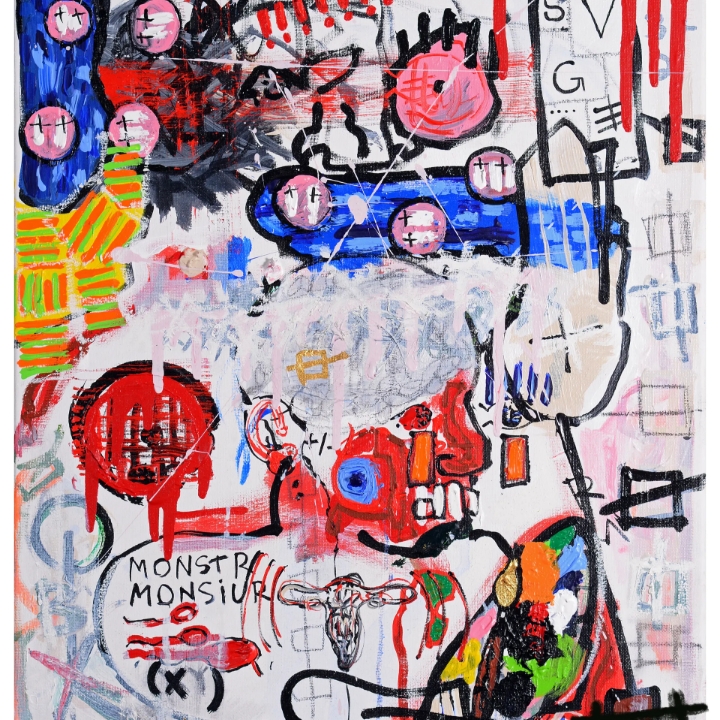 S V
G
+/-
MONSTR
MONSIUR
(X)